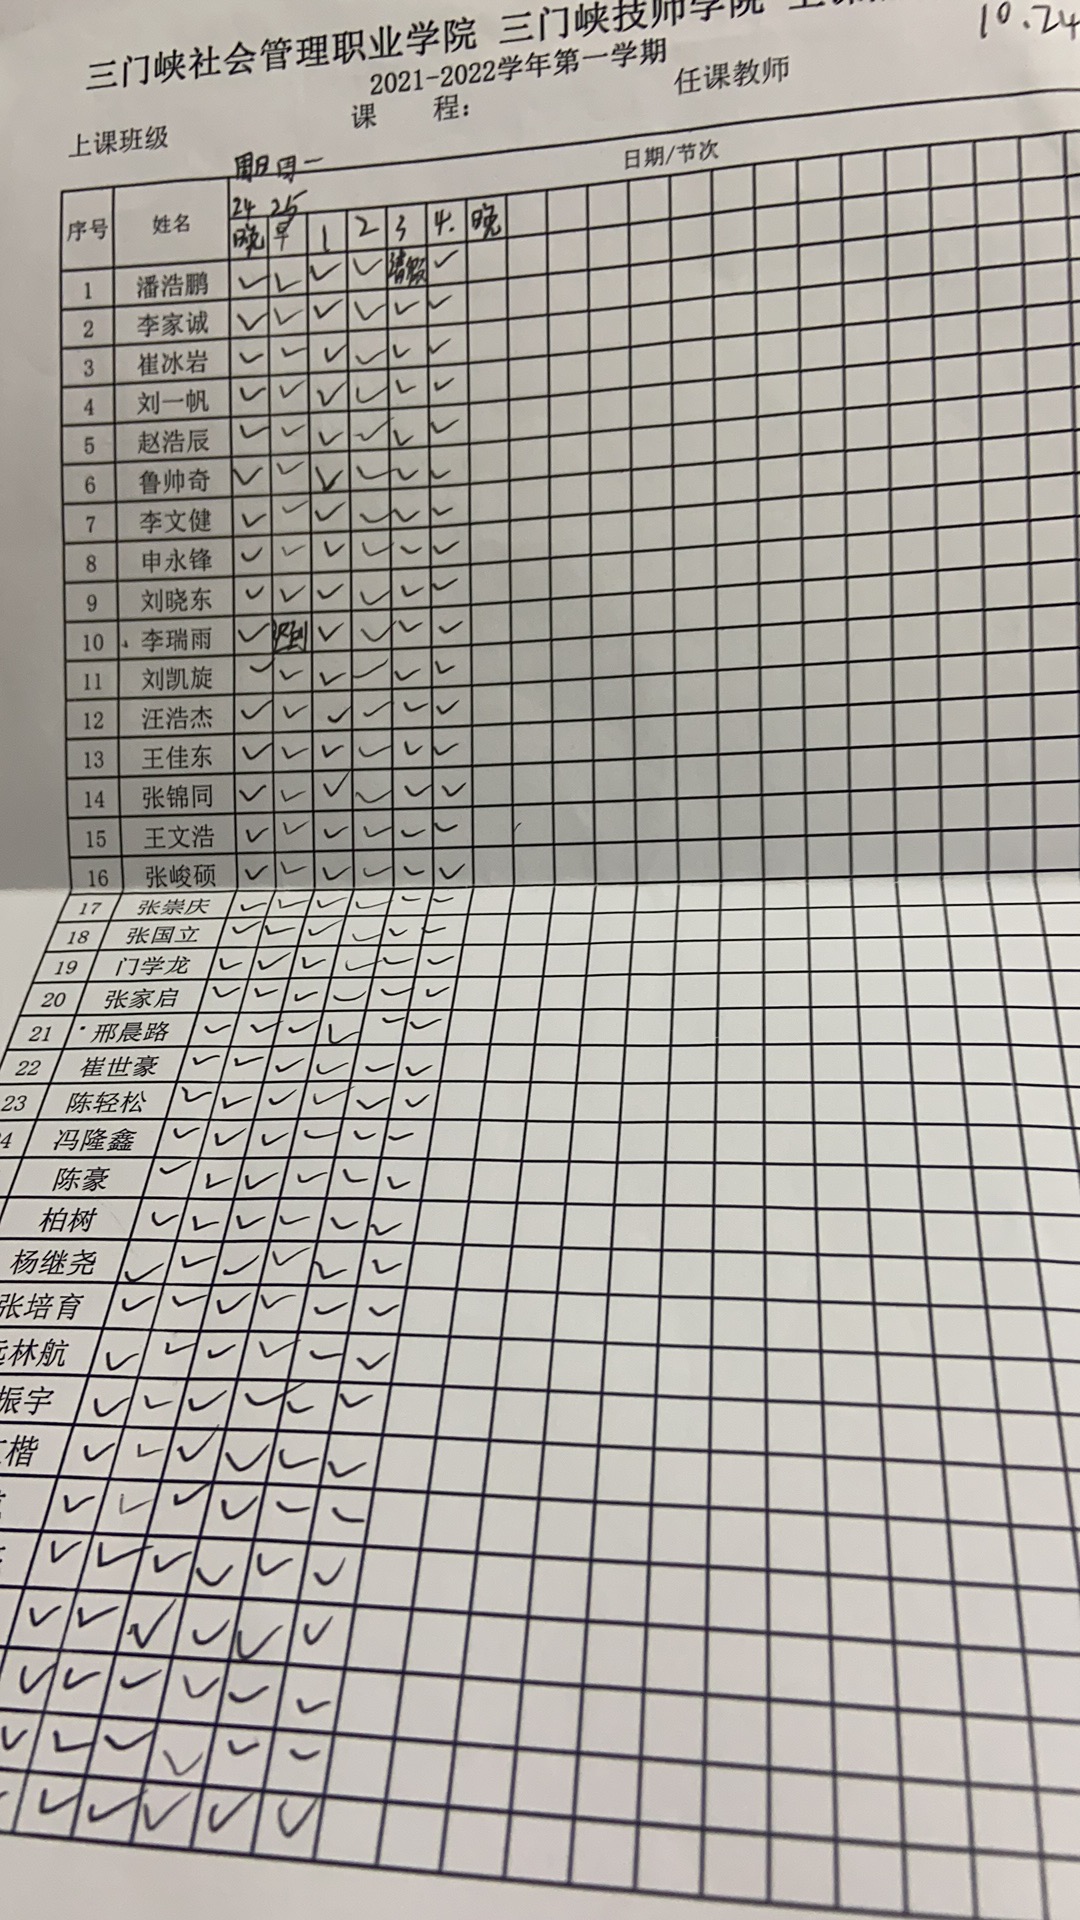 三门峡社会管理职业学院 三门峡技师学院 上课
10.24
2021-2022学年第一学期
上课班级 课 程: 任课教师
周日 周一
日期/节次
序号 姓名 24 25
晚 早 1 2 3 4. 晚
1 潘浩鹏 ✓ ✓ ✓ ✓ 请假 ✓
2 李家诚 ✓ ✓ ✓ ✓ ✓ ✓
3 崔冰岩 ✓ ✓ ✓ ✓ ✓ ✓
4 刘一帆 ✓ ✓ ✓ ✓ ✓ ✓
5 赵浩辰 ✓ ✓ ✓ ✓ ✓ ✓
6 鲁帅奇 ✓ ✓ ✓ ✓ ✓ ✓
7 李文健 ✓ ✓ ✓ ✓ ✓ ✓
8 申永锋 ✓ ✓ ✓ ✓ ✓ ✓
9 刘晓东 ✓ ✓ ✓ ✓ ✓ ✓
10 李瑞雨 ✓ 迟到 ✓ ✓ ✓ ✓
11 刘凯旋 ✓ ✓ ✓ ✓ ✓ ✓
12 汪浩杰 ✓ ✓ ✓ ✓ ✓ ✓
13 王佳东 ✓ ✓ ✓ ✓ ✓ ✓
14 张锦同 ✓ ✓ ✓ ✓ ✓ ✓
15 王文浩 ✓ ✓ ✓ ✓ ✓ ✓
16 张峻硕 ✓ ✓ ✓ ✓ ✓ ✓
17 张崇庆 ✓ ✓ ✓ ✓ ✓ ✓
18 张国立 ✓ ✓ ✓ ✓ ✓ ✓
19 门学龙 ✓ ✓ ✓ ✓ ✓ ✓
20 张家启 ✓ ✓ ✓ ✓ ✓ ✓
21 邢晨路 ✓ ✓ ✓ ✓ ✓ ✓
22 崔世豪 ✓ ✓ ✓ ✓ ✓ ✓
23 陈轻松 ✓ ✓ ✓ ✓ ✓ ✓
4 冯隆鑫 ✓ ✓ ✓ ✓ ✓ ✓
陈豪 ✓ ✓ ✓ ✓ ✓ ✓
柏树 ✓ ✓ ✓ ✓ ✓ ✓
杨继尧 ✓ ✓ ✓ ✓ ✓ ✓
张培育 ✓ ✓ ✓ ✓ ✓ ✓
林航 ✓ ✓ ✓ ✓ ✓ ✓
振宇 ✓ ✓ ✓ ✓ ✓ ✓
楷 ✓ ✓ ✓ ✓ ✓ ✓
✓ ✓ ✓ ✓ ✓ ✓
✓ ✓ ✓ ✓ ✓ ✓
✓ ✓ ✓ ✓ ✓ ✓
✓ ✓ ✓ ✓ ✓ ✓
✓ ✓ ✓ ✓ ✓ ✓
✓ ✓ ✓ ✓ ✓ ✓